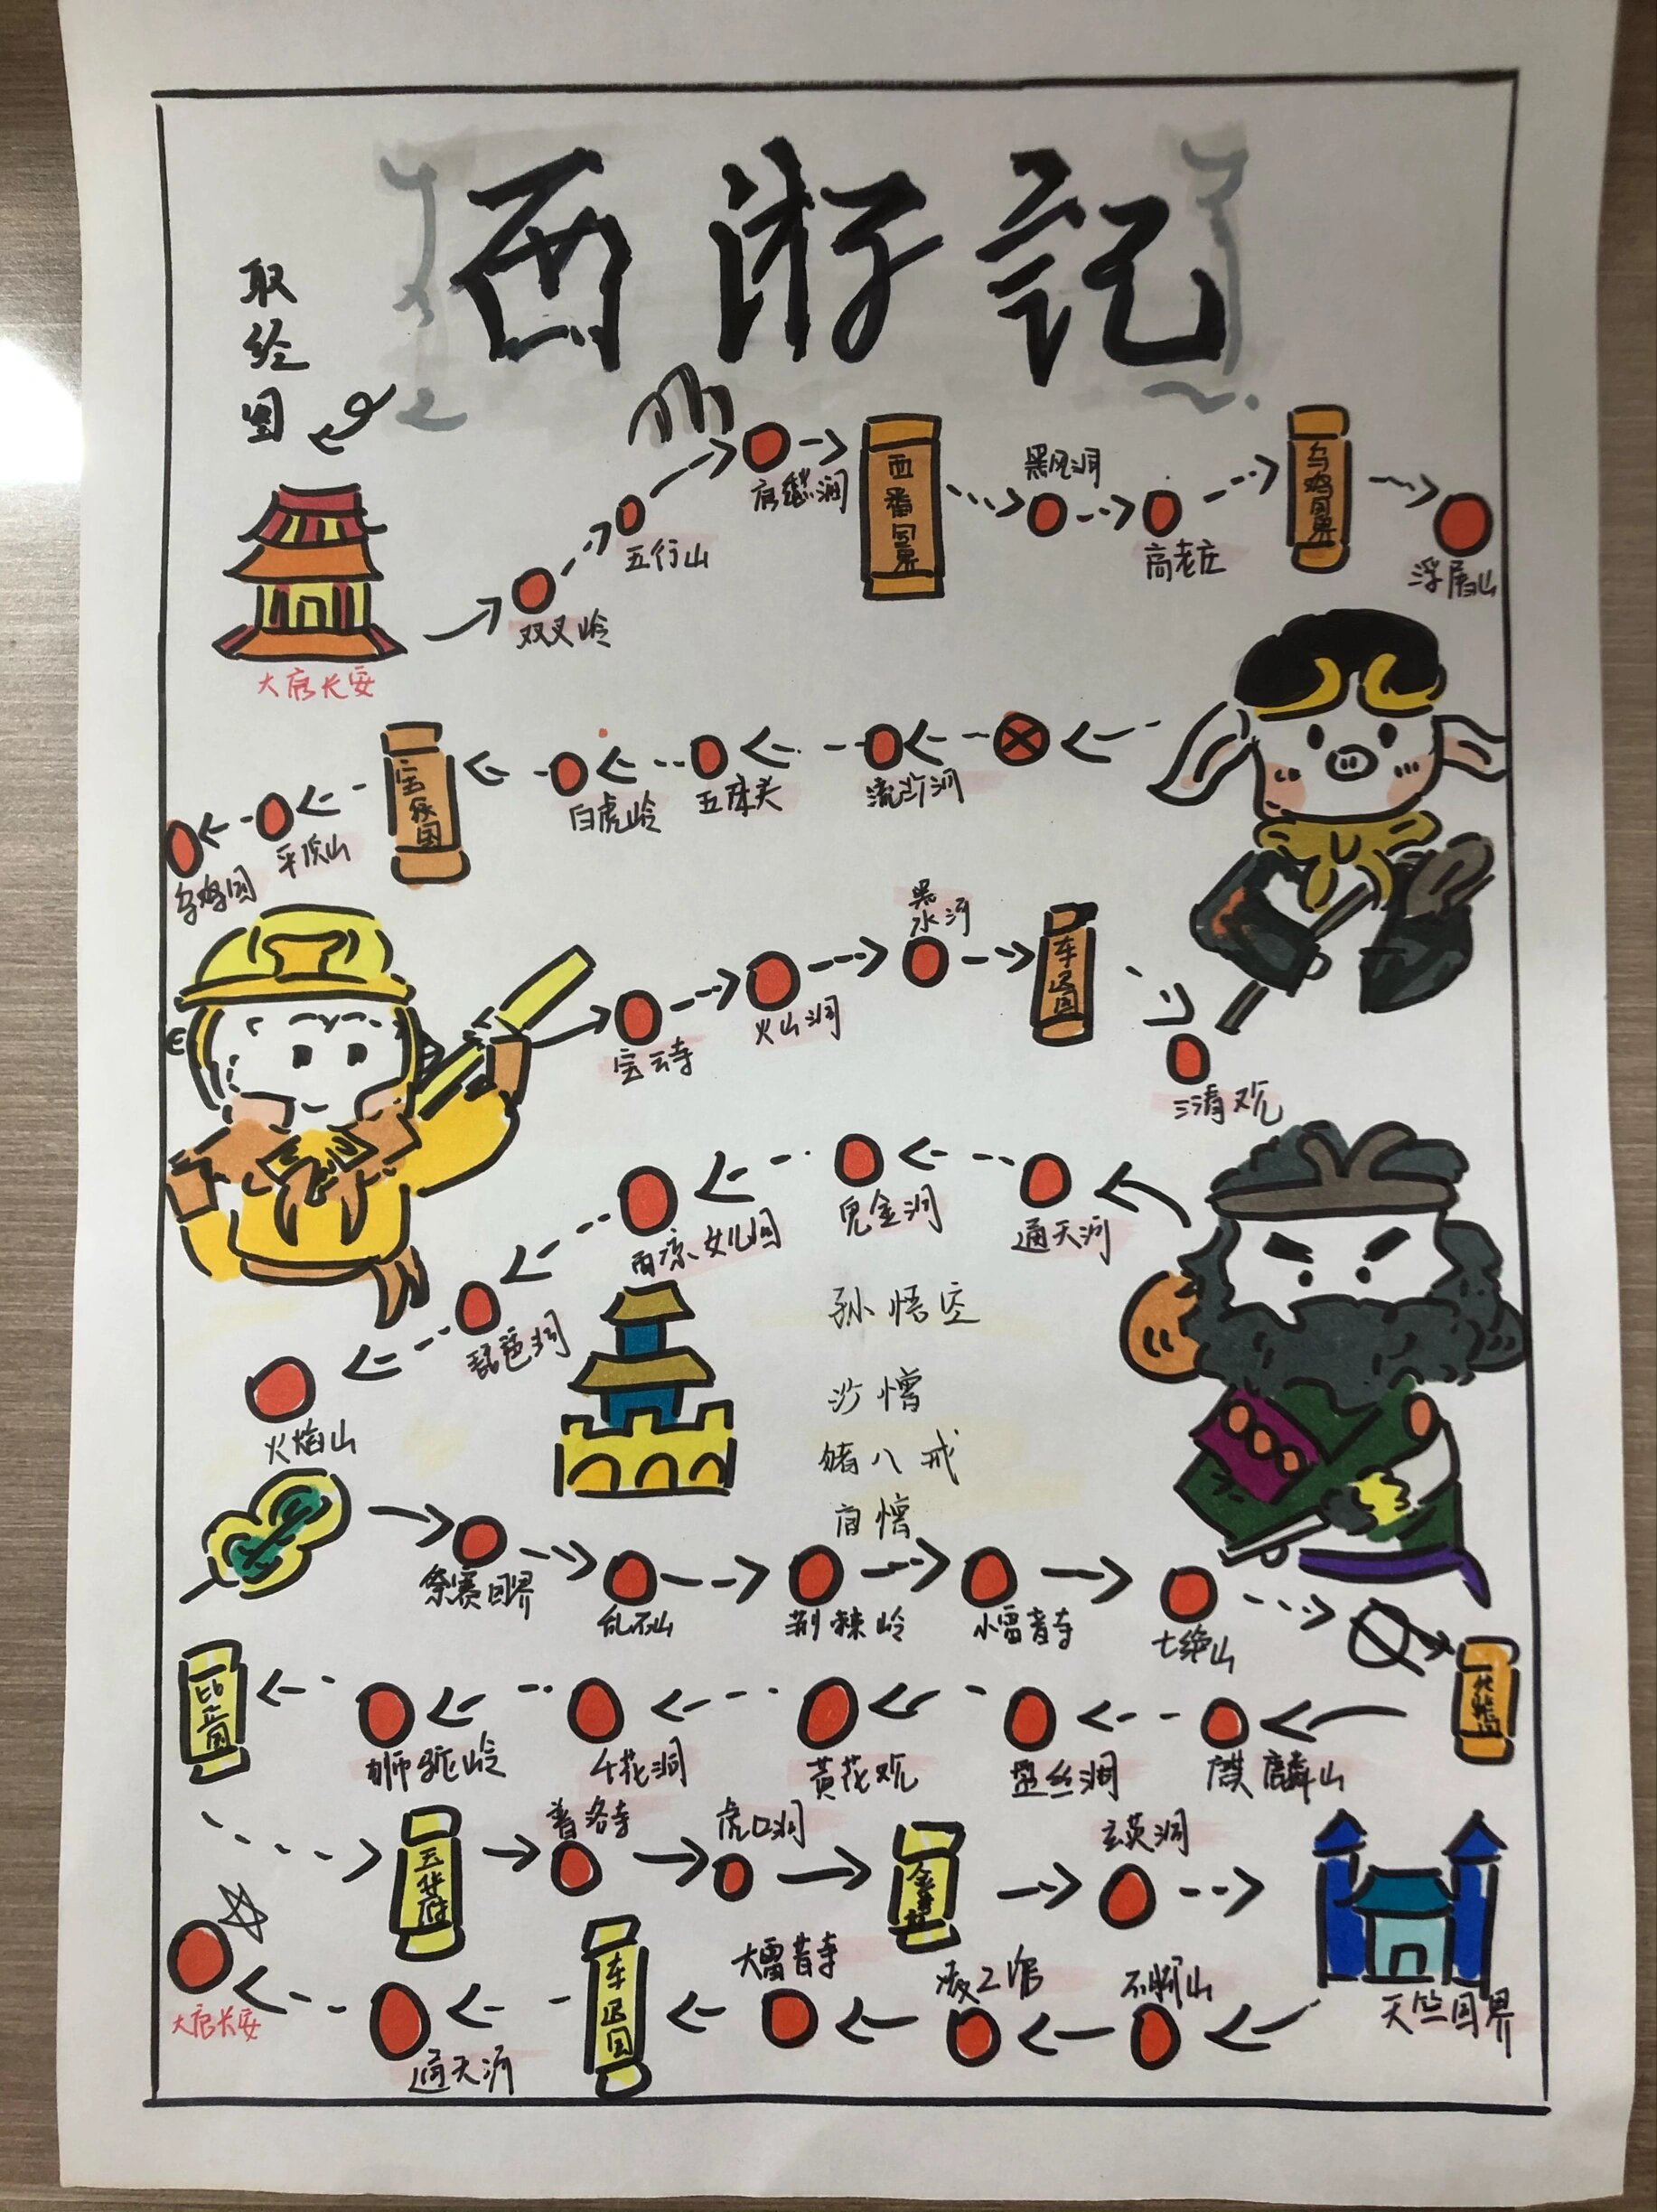 西游记
取经图
大唐长安
双叉岭
五行山
西番国界
黑风洞
高老庄
乌鸡国界
浮屠山
流沙河
五庄关
白虎岭
宝象国
平顶山
乌鸡国
宝云寺
火山洞
黑水河
车迟国
三清观
通天河
兕金洞
西凉女儿国
琵琶洞
火焰山
孙悟空
沙憎
猪八戒
唐憎
祭赛国界
乱石山
荆棘岭
小雷音寺
七绝山
麒麟山
盘丝洞
黄花观
千花洞
狮驼岭
比丘国
玉华府
普洛寺
虎口洞
玄英洞
天竺国界
大雷音寺
车迟国
通天河
大唐长安